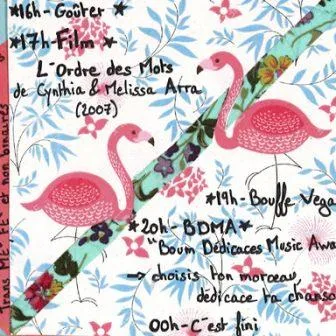 *16h - Goûter *
*17h - Film *
L'Ordre des Mots
de Cynthia & Melissa Arra
(2007)
*19h - Bouffe Vega
*20h - BDMA*
"Boum Dédicaces Music Awa
→ choisis ton morceau,
dédicace ta chanso
00h - C'est fini
et non binaires